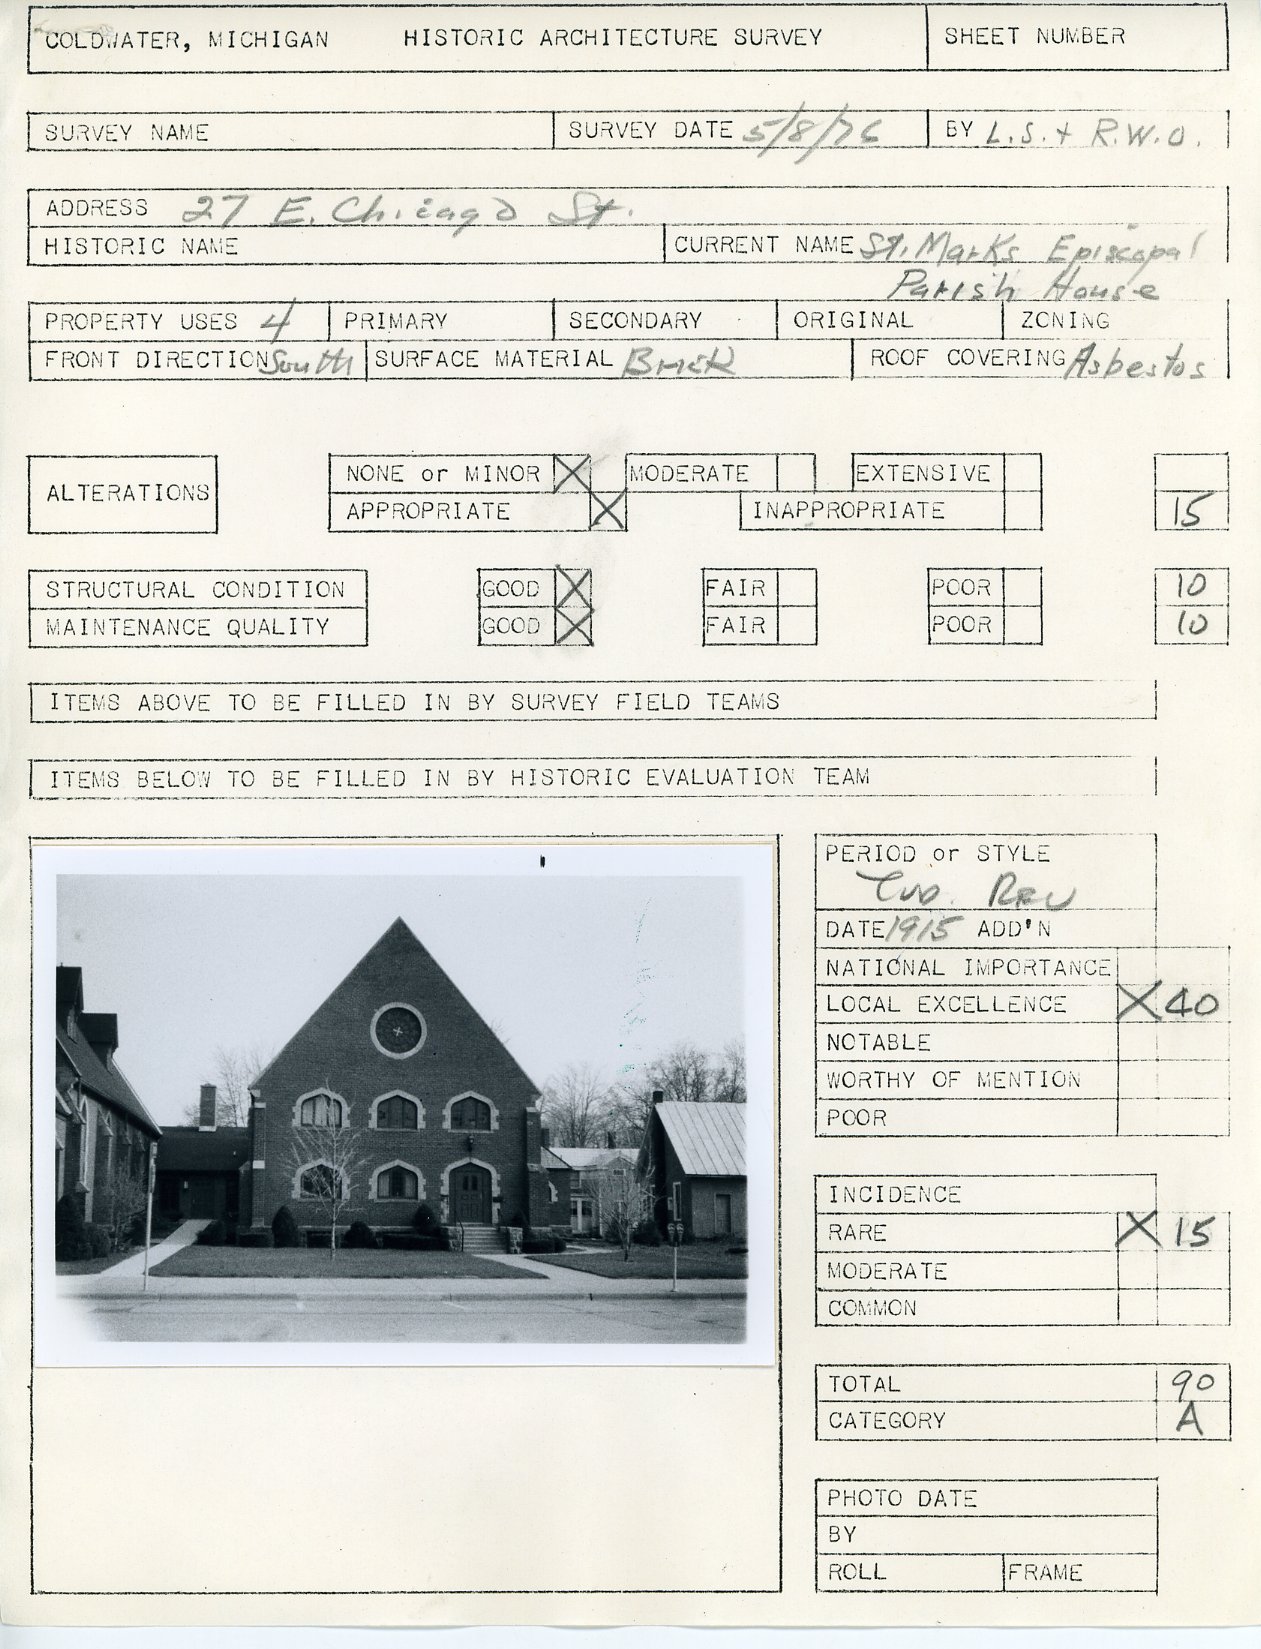 COLDWATER, MICHIGAN HISTORIC ARCHITECTURE SURVEY SHEET NUMBER
SURVEY NAME SURVEY DATE 5/8/76 BY L.S. + R.W.O.
ADDRESS 27 E. Chicago St.
HISTORIC NAME CURRENT NAME St. Marks Episcopal
Parish House
PROPERTY USES 4 PRIMARY SECONDARY ORIGINAL ZONING
FRONT DIRECTION South SURFACE MATERIAL Brick ROOF COVERING Asbestos
ALTERATIONS NONE or MINOR X MODERATE EXTENSIVE
APPROPRIATE X INAPPROPRIATE 15
STRUCTURAL CONDITION GOOD X FAIR POOR 10
MAINTENANCE QUALITY GOOD X FAIR POOR 10
ITEMS ABOVE TO BE FILLED IN BY SURVEY FIELD TEAMS
ITEMS BELOW TO BE FILLED IN BY HISTORIC EVALUATION TEAM
PERIOD or STYLE
Tud. Rev
DATE 1915 ADD'N
NATIONAL IMPORTANCE
LOCAL EXCELLENCE X 40
NOTABLE
WORTHY OF MENTION
POOR
INCIDENCE
RARE X 15
MODERATE
COMMON
TOTAL 90
CATEGORY A
PHOTO DATE
BY
ROLL FRAME